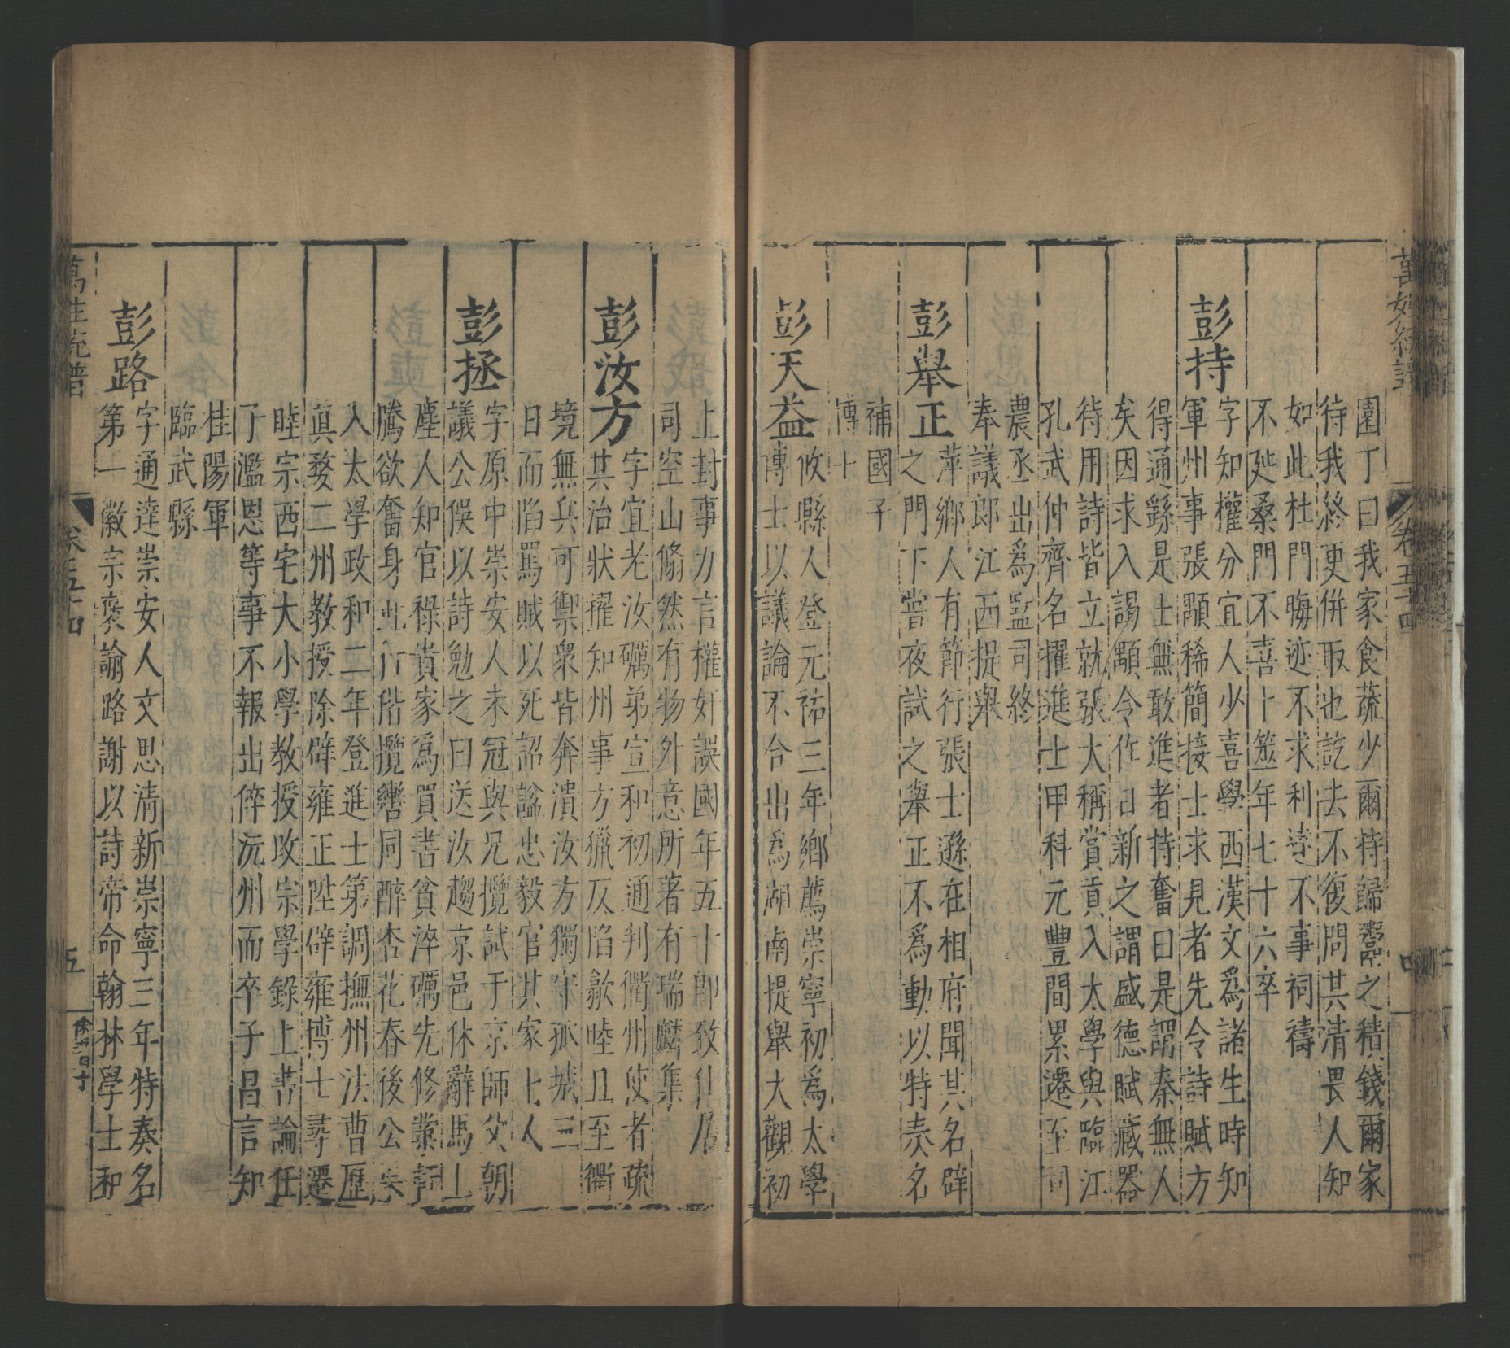 園丁曰我家食蔬少爾持歸鬻之積錢爾家
待我終更併取也訖去不復問其清畏人知
如此杜門晦迹不求利達不事祠禱
不延桑門不喜卜筮年七十六卒
彭持
字知權分宜人少喜學西漢文為諸生時知
軍州事張顒稀簡接士求見者先令詩賦方
得通繇是士無敢進者持奮曰是謂秦無人
矣因求入謁顒令作日新之謂盛德賦藏器
待用詩皆立就張大稱賞貢入太學與臨江
孔武仲齊名擢進士甲科元豐間累遷至司
農丞出為監司終
奉議郎江西提舉
彭舉正
萍鄉人有節行張士遜在相府聞其名辟
之門下嘗夜試之舉正不為動以特奏名
補國子
博士
彭天益
攸縣人登元祐三年鄉薦崇寧初為太學
博士以議論不合出為湖南提舉大觀初
上封事力言權奸誤國年五十即致仕居
司空山翛然有物外意所著有瑞麟集
彭汝方
字宜老汝礪弟宣和初通判衢州使者疏
其治狀擢知州事方獵仄陷歙睦且至衢
境無兵可禦衆皆奔潰汝方獨守孤城三
日而陷罵賊以死詔諡忠毅官其家七人
彭拯
字原中崇安人未冠與兄攬試于京師父朝
議公俁以詩勉之曰送汝趨京邑休辭馬上
塵人知官祿貴家為買書貧淬礪先修業詞
騰欲奮身此行偕攬轡同醉杏花春後公矣
入太學政和二年登進士第調撫州法曹歷
真婺二州教授除辟雍正陞辟雍博士尋遷
睦宗西宅大小學教授攻宗學錄上書論任
子濫恩等事不報出倅沅州而卒子昌言知
桂陽軍
臨武縣
彭路
字通達崇安人文思清新崇寧三年特奏名
第一徽宗褒諭路謝以詩帝命翰林學士和
萬姓統譜
卷五十四
五